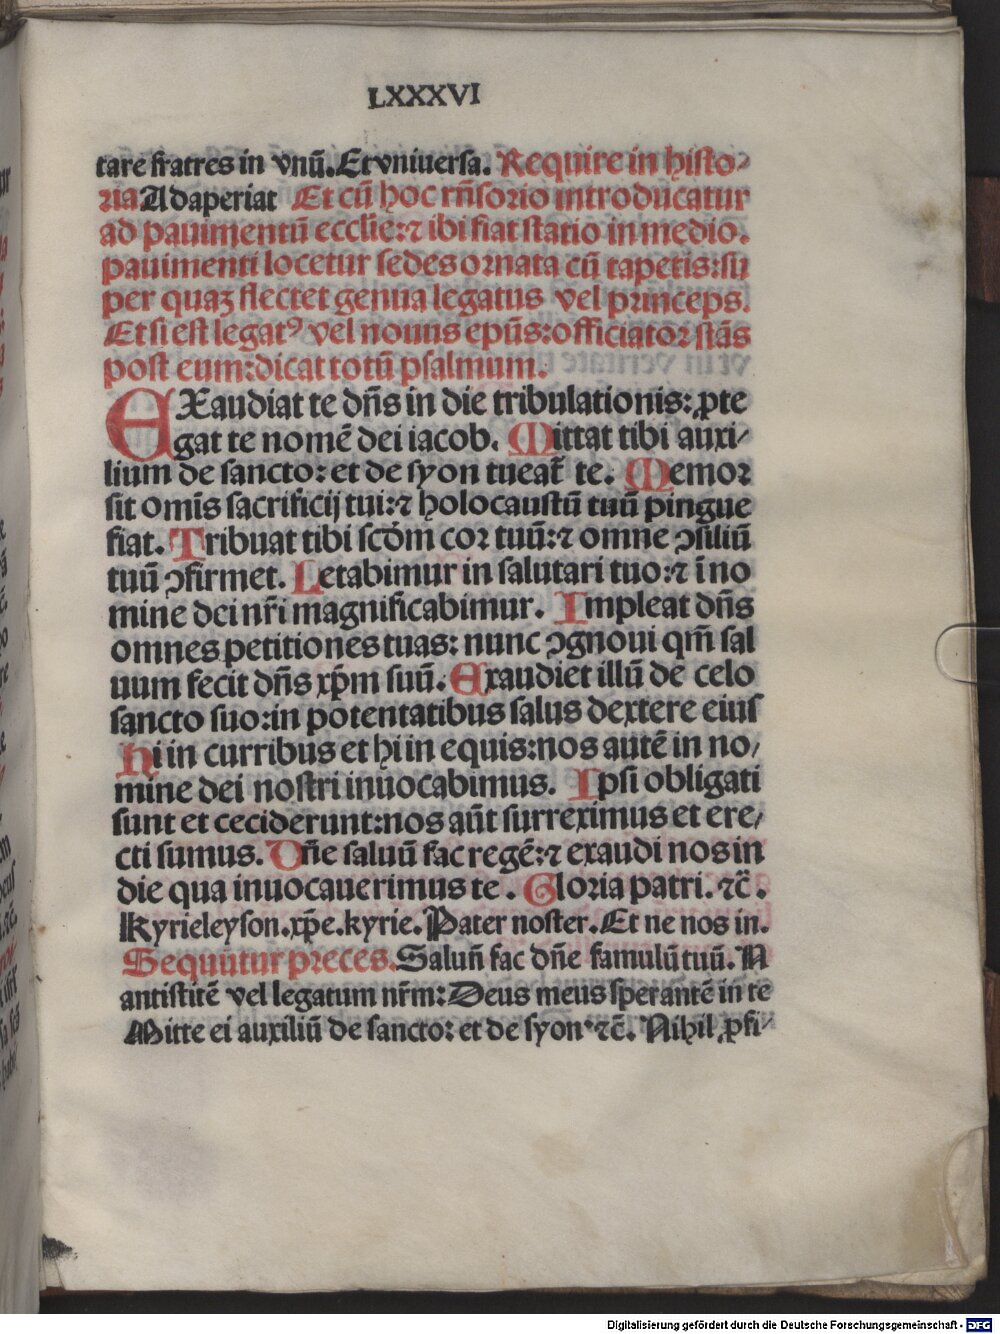 LXXXVI
tare fratres in vnū. Et vniuersa. Require in histo⸗
ria Adaperiat Et cū hoc rn̄sorio introducatur
ad pauimentū ecclie: ⁊ ibi fiat statio in medio.
pauimenti locetur sedes ornata cū tapetis: su
per quaꝫ flectet genua legatus vel princeps.
Et si est legatꝰ vel nouus ep̄us: officiatoꝛ stās
post eum: dicat totū psalmum.
EXaudiat te dn̄s in die tribulationis: ꝓte
gat te nomē dei iacob. Mittat tibi auxi⸗
lium de sancto: et de syon tueat̄ te. Memoꝛ
sit omīs sacrificij tui: ⁊ holocaustū tuū pingue
fiat. Tribuat tibi scd̄m coꝛ tuū: ⁊ omne ꝯsiliū
tuū ꝯfirmet. Letabimur in salutari tuo: ⁊ ī no
mine dei nr̄i magnificabimur. Impleat dn̄s
omnes petitiones tuas: nunc ꝯgnoui qm̄ sal
uum fecit dn̄s xp̄m suū. Exaudiet illū de celo
sancto suo: in potentatibus salus dextere eius
Hi in curribus et hi in equis: nos autē in no⸗
mine dei nostri inuocabimus. Ipsi obligati
sunt et ceciderunt: nos aūt surreximus et ere⸗
cti sumus. Dn̄e saluū fac regē: ⁊ exaudi nos in
die qua inuocauerimus te. Gloria patri. ⁊c̄.
Kyrieleyson. xp̄e. kyrie. Pater noster. Et ne nos in.
Sequūtur preces. Saluū fac dn̄e famulū tuū. N
antistitē vel legatum nr̄m: Deus meus sperantē in te
Mitte ei auxiliū de sancto: et de syon ⁊c̄. Nihil ꝓfi⸗
Digitalisierung gefördert durch die Deutsche Forschungsgemeinschaft - DFG